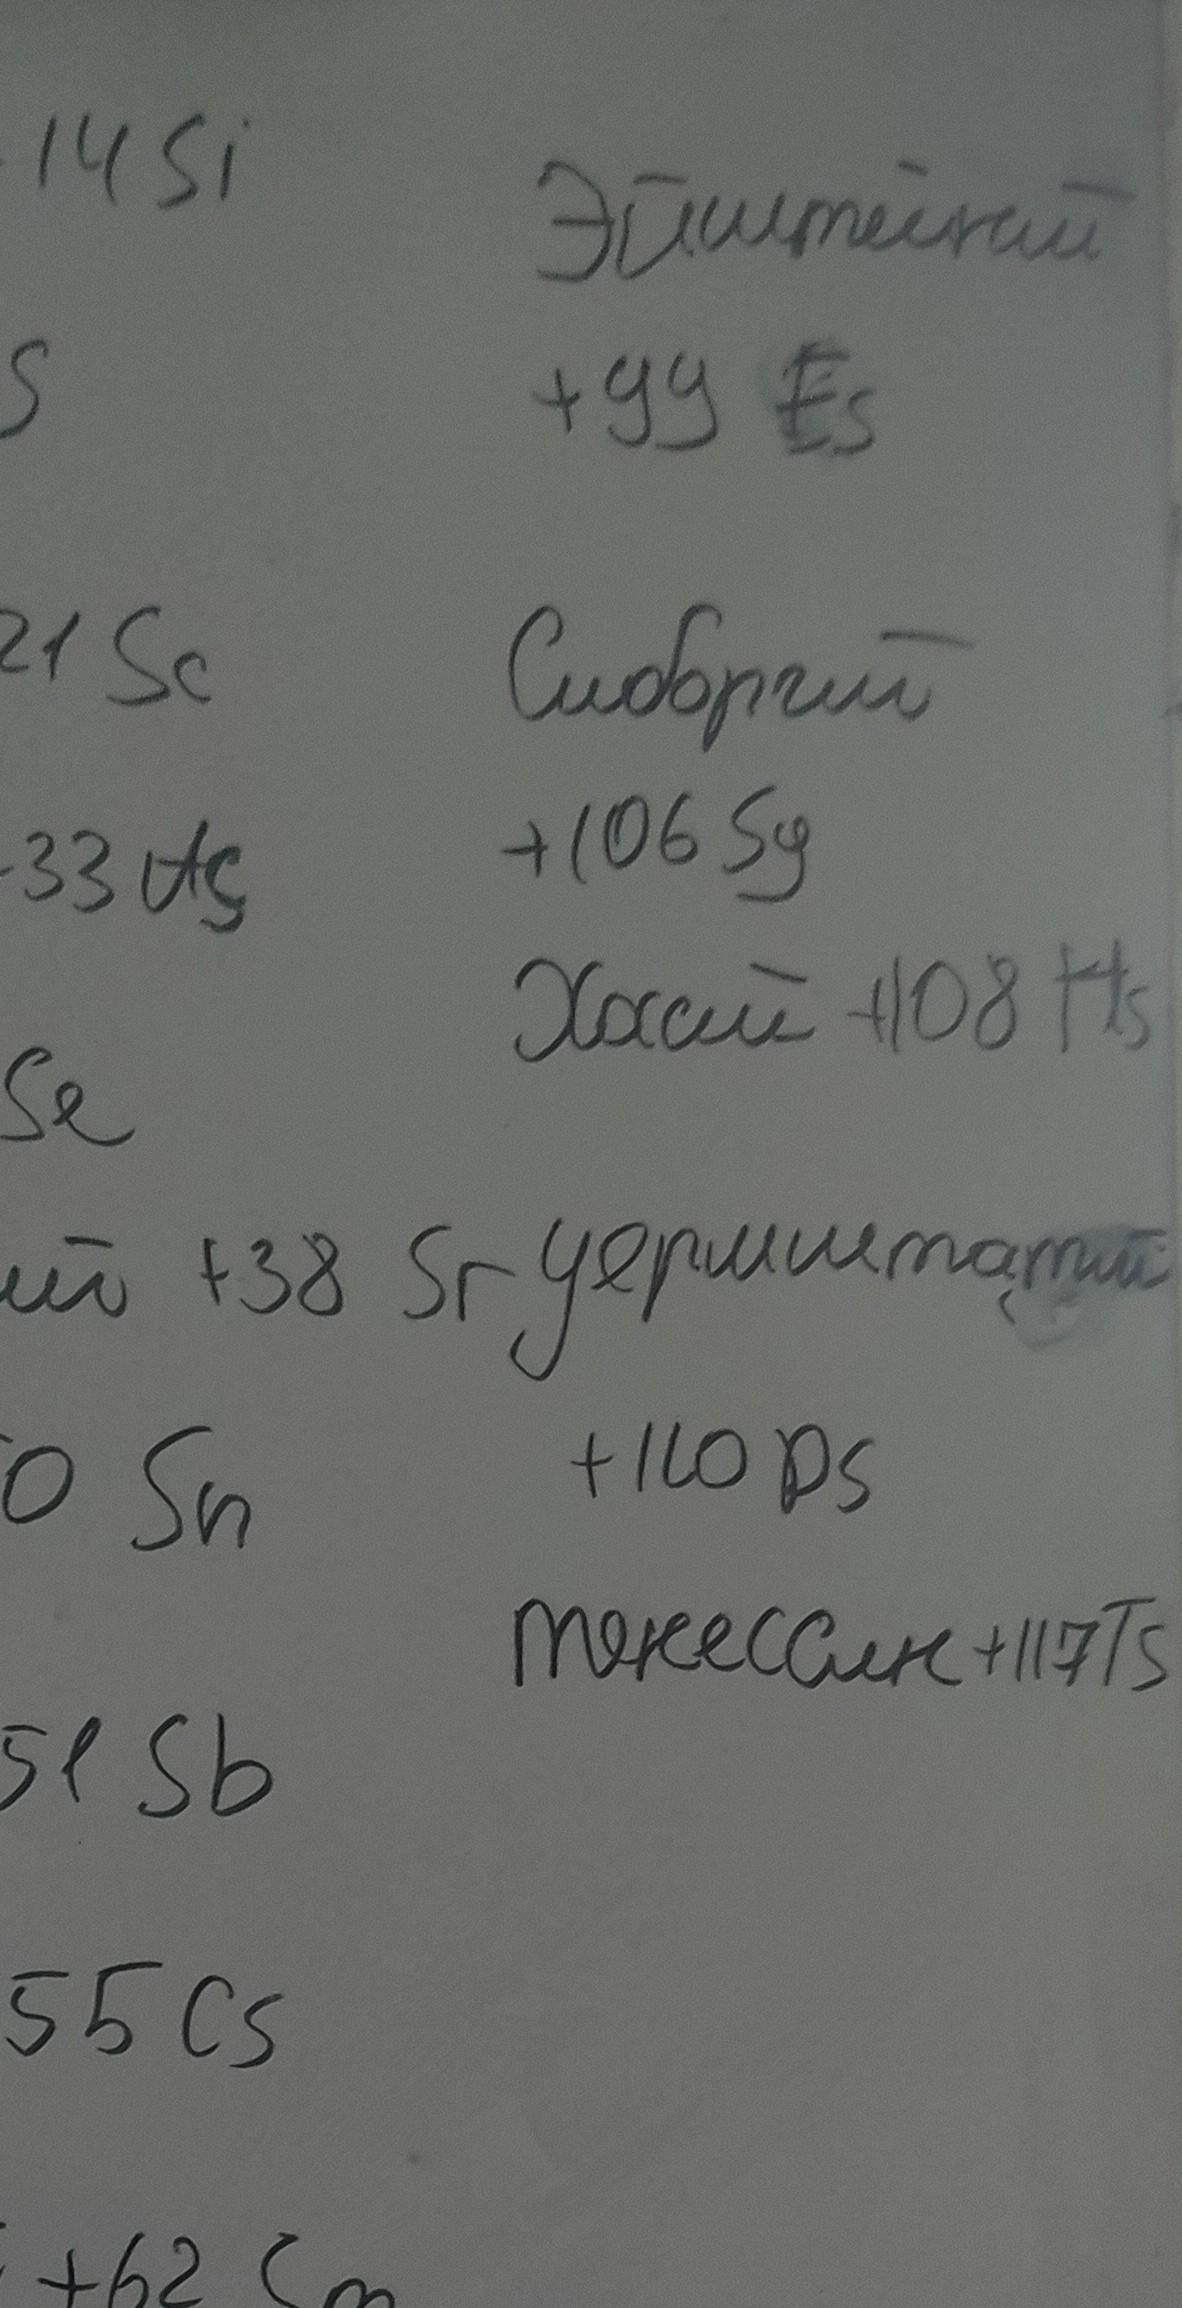 14 Si
Эйнштейний
S
+99 Es
21 Sc
Сиборгий
33 As
+106 Sg
Хасий +108 Hs
Se
ий +38 Sr
+110 Ds
0 Sn
теннессин +117 Ts
51 Sb
55 Cs
+62 Sm